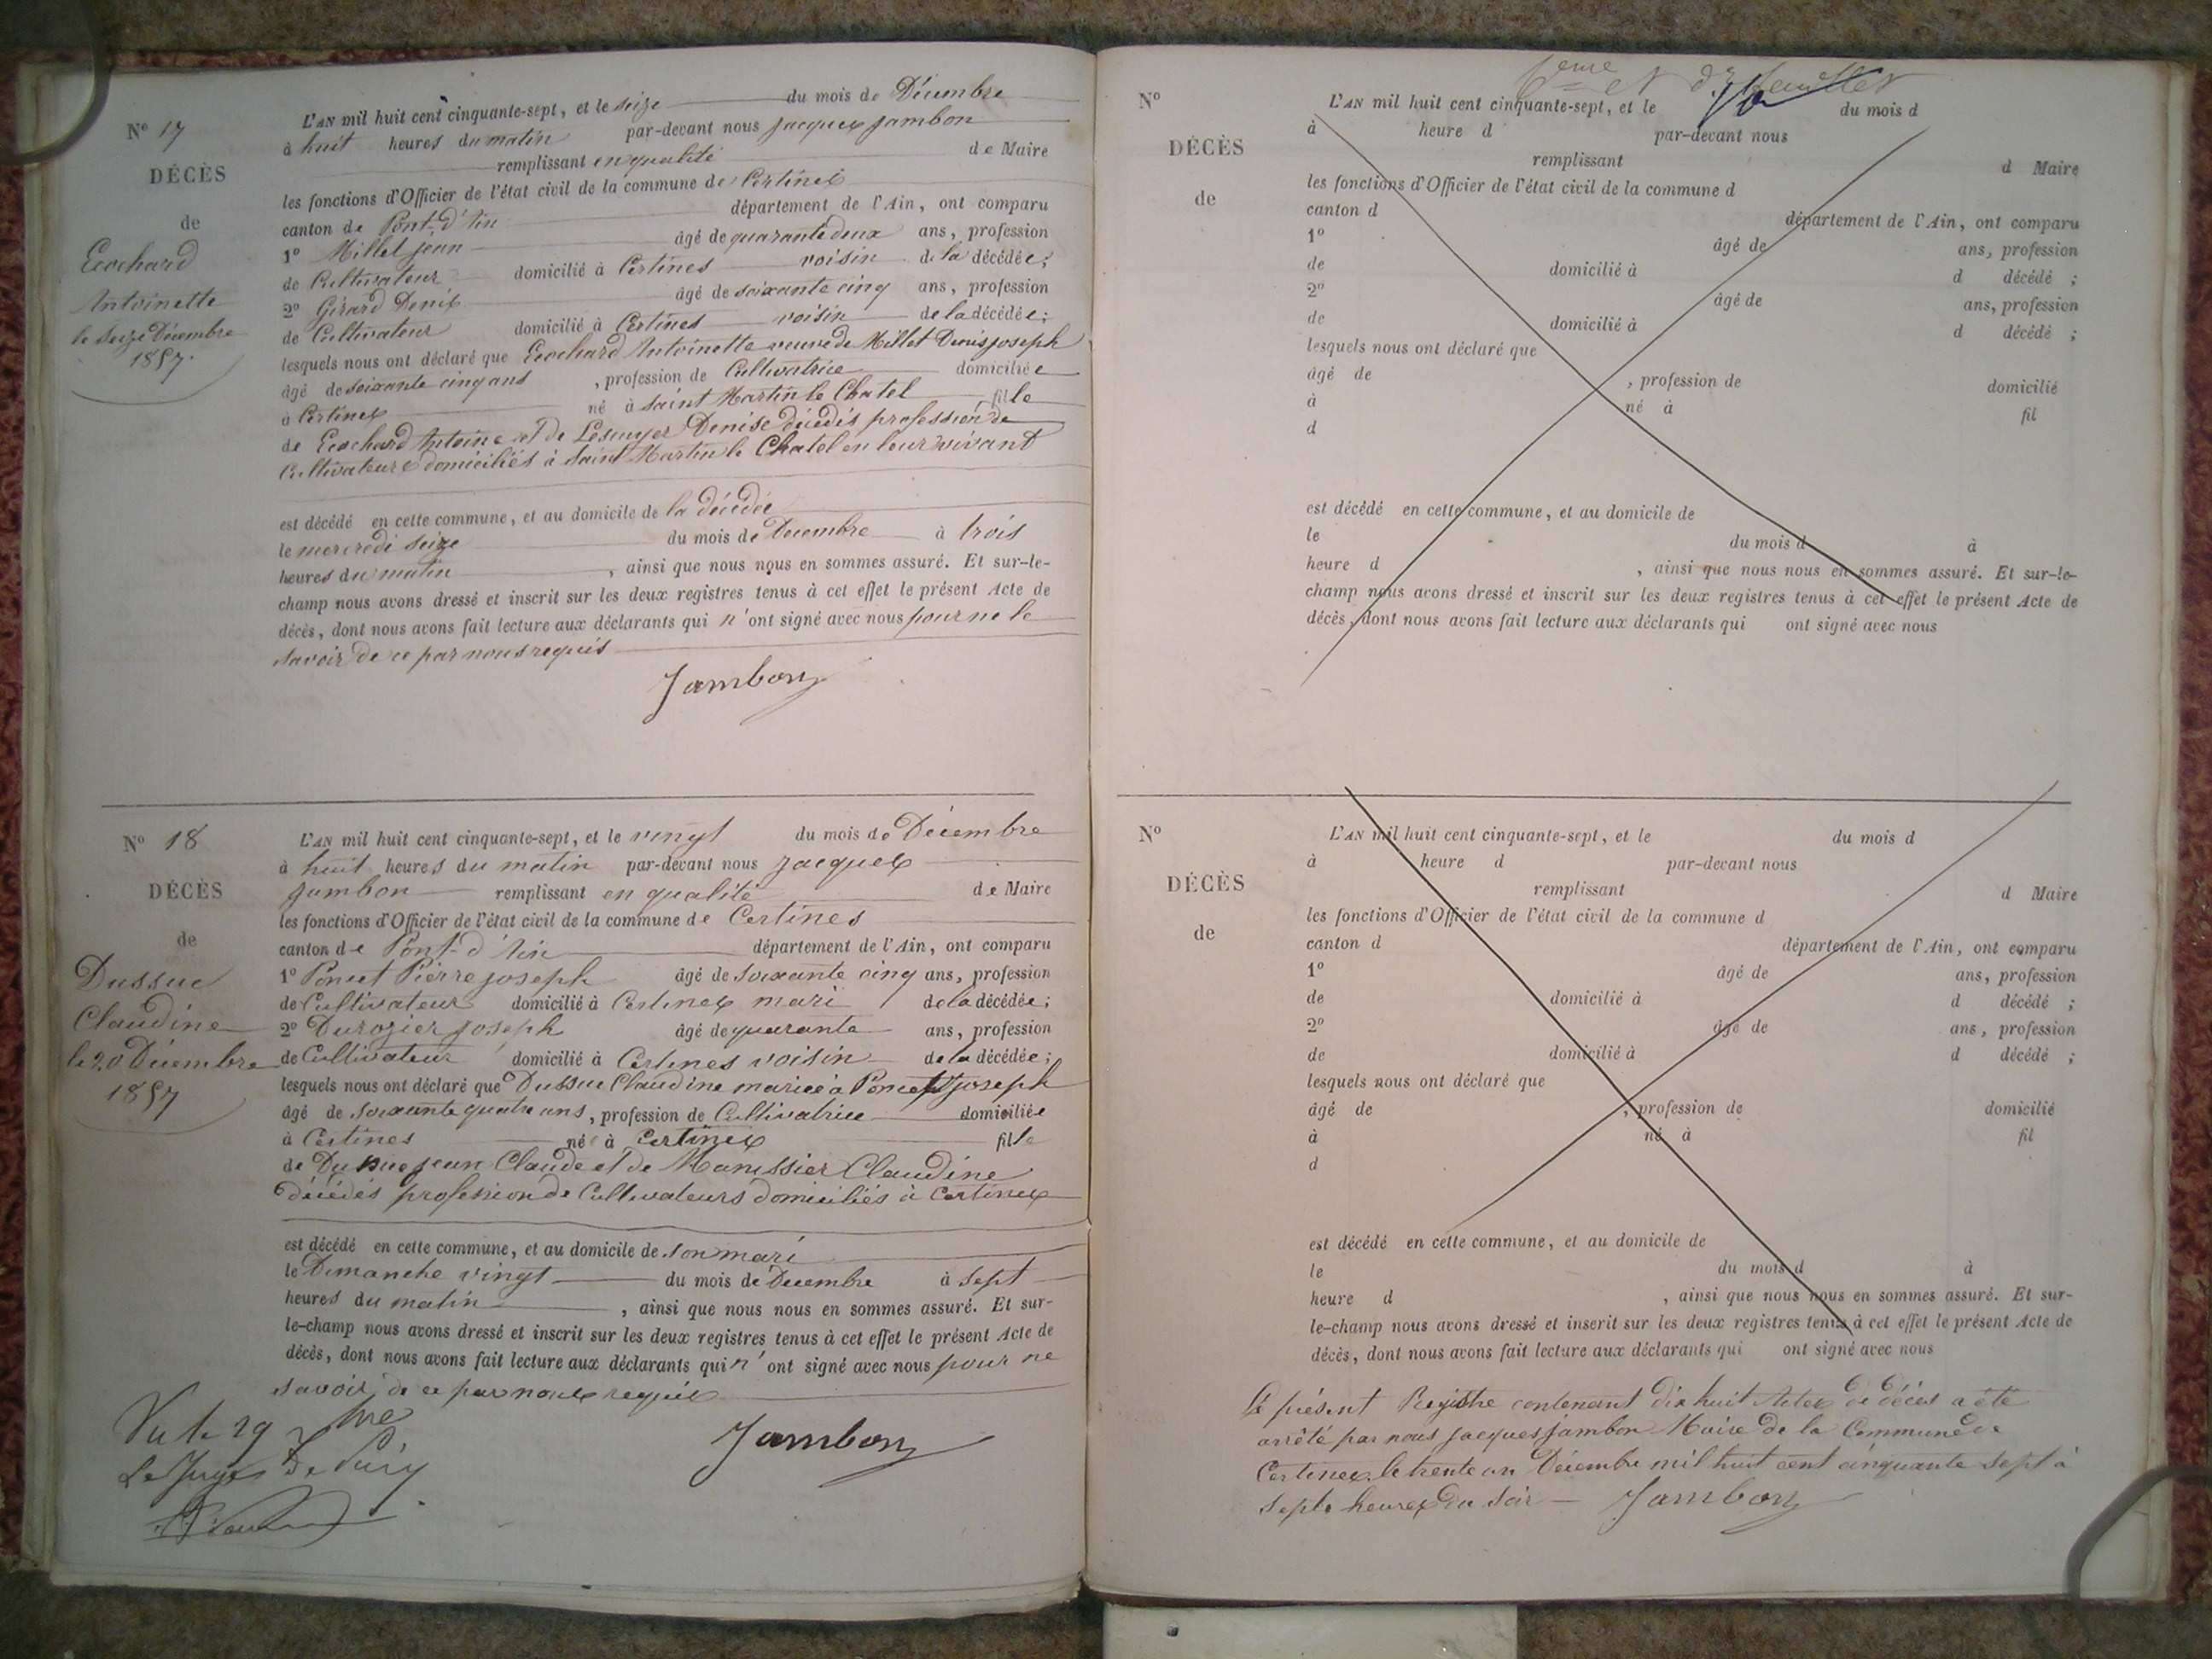 N° 17
DÉCÈS
de
Ecochard
Antoinette
le seize Décembre
1857.
L'AN mil huit cent cinquante-sept, et le seize du mois de Décembre
à huit heures du matin par-devant nous Jacques Jambon
remplissant en qualité de Maire
les fonctions d'Officier de l'état civil de la commune de Certines
canton de Pont-d'Ain département de l'Ain, ont comparu
1° Millet Jean âgé de quarante deux ans, profession
de Cultivateur domicilié à Certines voisin de la décédée;
2° Gérard Denis âgé de soixante cinq ans, profession
de Cultivateur domicilié à Certines voisin de la décédée;
lesquels nous ont déclaré que Ecochard Antoinette veuve de Millet Denis joseph
âgé de soixante cinq ans, profession de Cultivatrice domiciliée
à Certines né à saint Martin le Chatel fille
de Ecochard Antoine et de Denise décédés profession de
Cultivateurs domiciliés à Saint Martin le Chatel en leur vivant
est décédé en cette commune, et au domicile de la décédée
le mercredi seize du mois de Décembre à trois
heures du matin, ainsi que nous nous en sommes assuré. Et sur-le-
champ nous avons dressé et inscrit sur les deux registres tenus à cet effet le présent Acte de
décès, dont nous avons fait lecture aux déclarants qui n'ont signé avec nous pour ne le
savoir de ce par nous requis
Jambon
N° 18
DÉCÈS
de
Dussuc
Claudine
le 20 Décembre
1857
L'AN mil huit cent cinquante-sept, et le vingt du mois de Décembre
à huit heures du matin par-devant nous Jacques
Jambon remplissant en qualité de Maire
les fonctions d'Officier de l'état civil de la commune de Certines
canton de Pont-d'Ain département de l'Ain, ont comparu
1° Poncet Pierre joseph âgé de soixante cinq ans, profession
de Cultivateur domicilié à Certines mari de la décédée;
2° Durozier Joseph âgé de quarante ans, profession
de Cultivateur domicilié à Certines voisin de la décédée;
lesquels nous ont déclaré que Dussuc Claudine mariée à Poncet joseph
âgé de soixante quatre ans, profession de Cultivatrice domiciliée
à Certines né à Certines fille
de Dussuc Jean Claude et de Manissier Claudine
décédés profession de Cultivateurs domiciliés à Certines
est décédé en cette commune, et au domicile de son mari
le Dimanche vingt du mois de Décembre à sept
heures du matin, ainsi que nous nous en sommes assuré. Et sur-
le-champ nous avons dressé et inscrit sur les deux registres tenus à cet effet le présent Acte de
décès, dont nous avons fait lecture aux déclarants qui n'ont signé avec nous pour ne
savoir, de ce par nous requis
Jambon
Vu le 29
Le Juge de
N°
DÉCÈS
de
L'AN mil huit cent cinquante-sept, et le du mois d
à heure d par-devant nous
remplissant d Maire
les fonctions d'Officier de l'état civil de la commune d
canton d département de l'Ain, ont comparu
1° âgé de ans, profession
de domicilié à d décédé ;
2° âgé de ans, profession
de domicilié à d décédé ;
lesquels nous ont déclaré que
âgé de , profession de domicilié
à né à fil
d
est décédé en cette commune, et au domicile de
le du mois d à
heure d , ainsi que nous nous en sommes assuré. Et sur-le-
champ nous avons dressé et inscrit sur les deux registres tenus à cet effet le présent Acte de
décès, dont nous avons fait lecture aux déclarants qui ont signé avec nous
N°
DÉCÈS
de
L'AN mil huit cent cinquante-sept, et le du mois d
à heure d par-devant nous
remplissant d Maire
les fonctions d'Officier de l'état civil de la commune d
canton d département de l'Ain, ont comparu
1° âgé de ans, profession
de domicilié à d décédé ;
2° âgé de ans, profession
de domicilié à d décédé ;
lesquels nous ont déclaré que
âgé de , profession de domicilié
à né à fil
d
est décédé en cette commune, et au domicile de
le du mois d à
heure d , ainsi que nous nous en sommes assuré. Et sur-
le-champ nous avons dressé et inscrit sur les deux registres tenus à cet effet le présent Acte de
décès, dont nous avons fait lecture aux déclarants qui ont signé avec nous
Le présent Registre contenant dix huit Actes de décès a été
arrêté par nous Jacques Jambon Maire de la Commune de
Certines le trente un Décembre mil huit cent cinquante sept à
sept heures du Soir Jambon